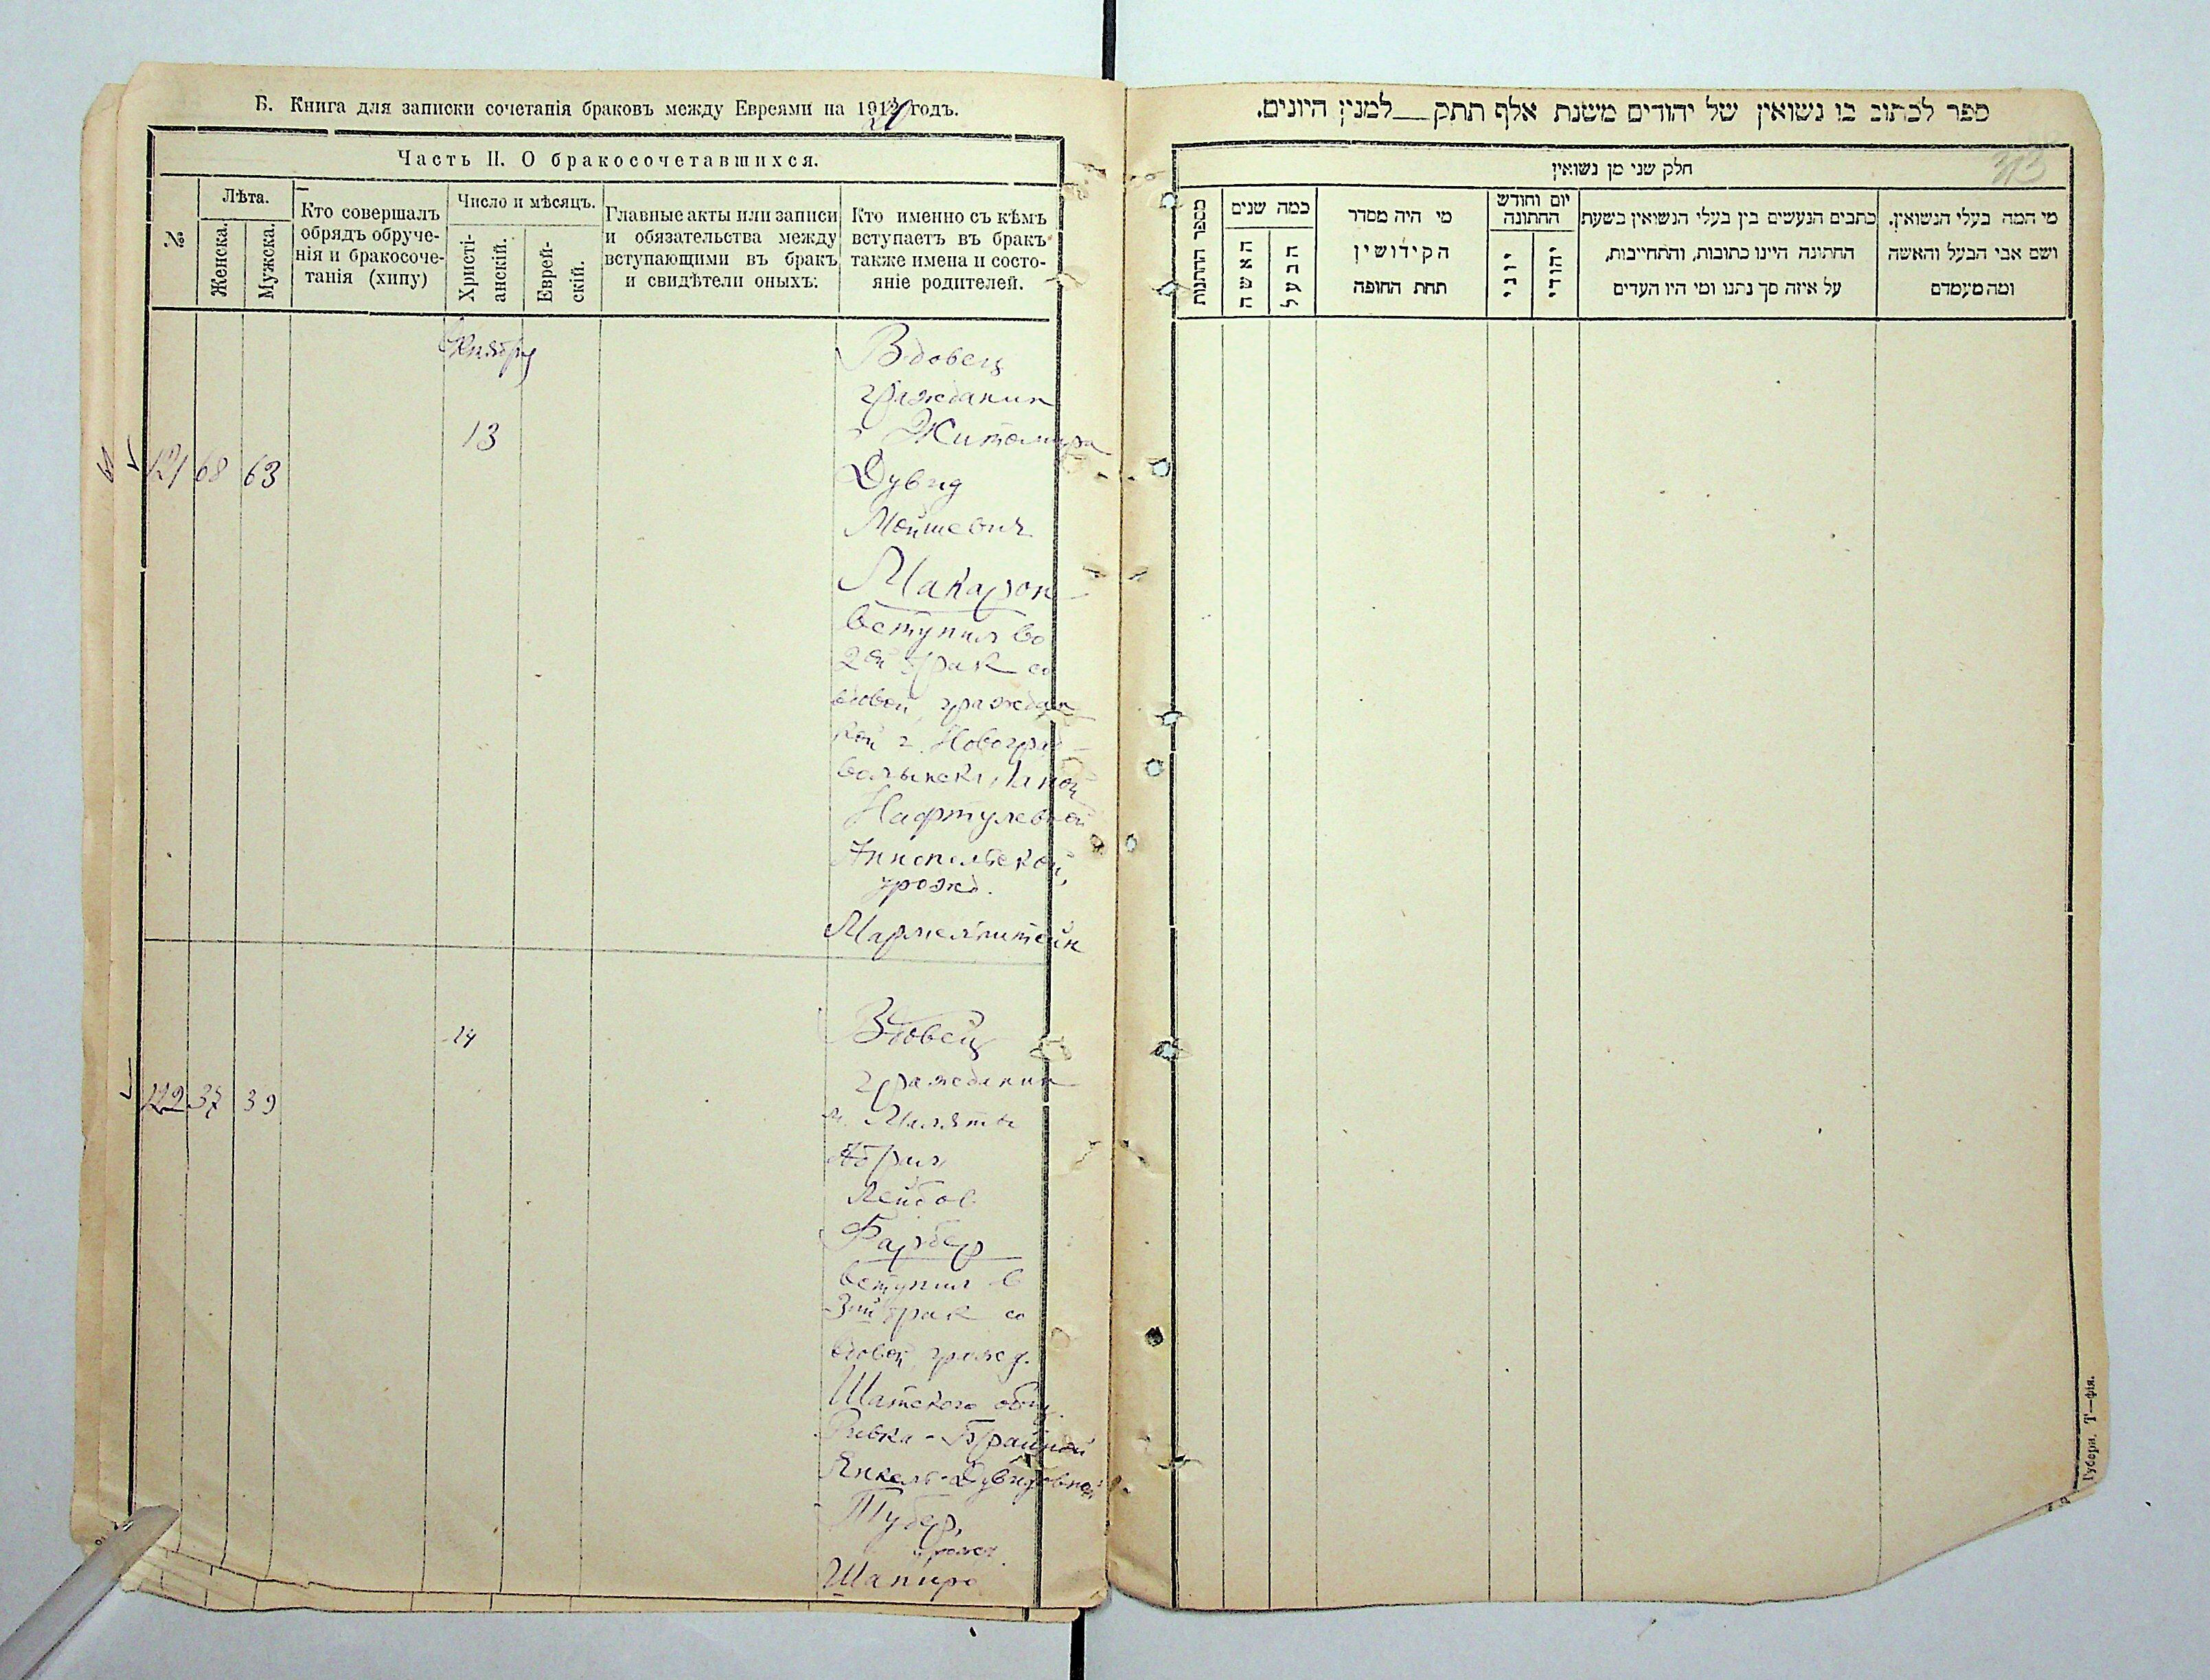 Б. Книга для записки сочетанія браковъ между Евреями на 1920 годъ.
Часть II. О бракосочетавшихся.
№
Лѣта.
Женска.
Мужска.
Кто совершалъ
обрядъ обруче-
нія и бракосоче-
танія (хипу)
Число и мѣсяцъ.
Христі-
анскій.
Еврей-
скій.
Главные акты или записи
и обязательства между
вступающими въ бракъ
и свидѣтели оныхъ:
Кто именно съ кѣмъ
вступаетъ въ бракъ
также имена и состо-
яніе родителей.
121 68 63
13
Вдовец
гражданин
г Житомира
Дувид
Мойшевич
Макарон
вступил во
2ой брак со
вдовой, граждан
кой г. Новоград-
волынска, Ханой
Нафтулевной
Аннопольской,
урожд.
Мармельштейн
122 37 39
14
Вдовец
гражданин
м. Миляты
Абрам
Лейбов
Фарбер
вступил в
3ий брак со
вдовой, гражд.
Шатского общ.
Ривка-Брайной
Янкель-Дувидовной
Тубер,
урожд.
Шапиро
ספר לכתוב בו נשואין של יהודים משנת אלף תתק__למנין היונים.
חלק שני מן נשואין
מספר החתנות
כמה שנים
האשה
הבעל
מי היה מסדר
הקידושין
תחת החופה
יום וחודש
החתונה
יוני
יהודי
כתבים הנעשים בין בעלי הנשואין בשעת
החתונה היינו כתובות, והתחייבות,
על איזה סך נתנו ומי היו העדים
מי המה בעלי הנשואין.
ושם אבי הבעל והאשה
ומה מעמדם
Губерн. Т—фія.